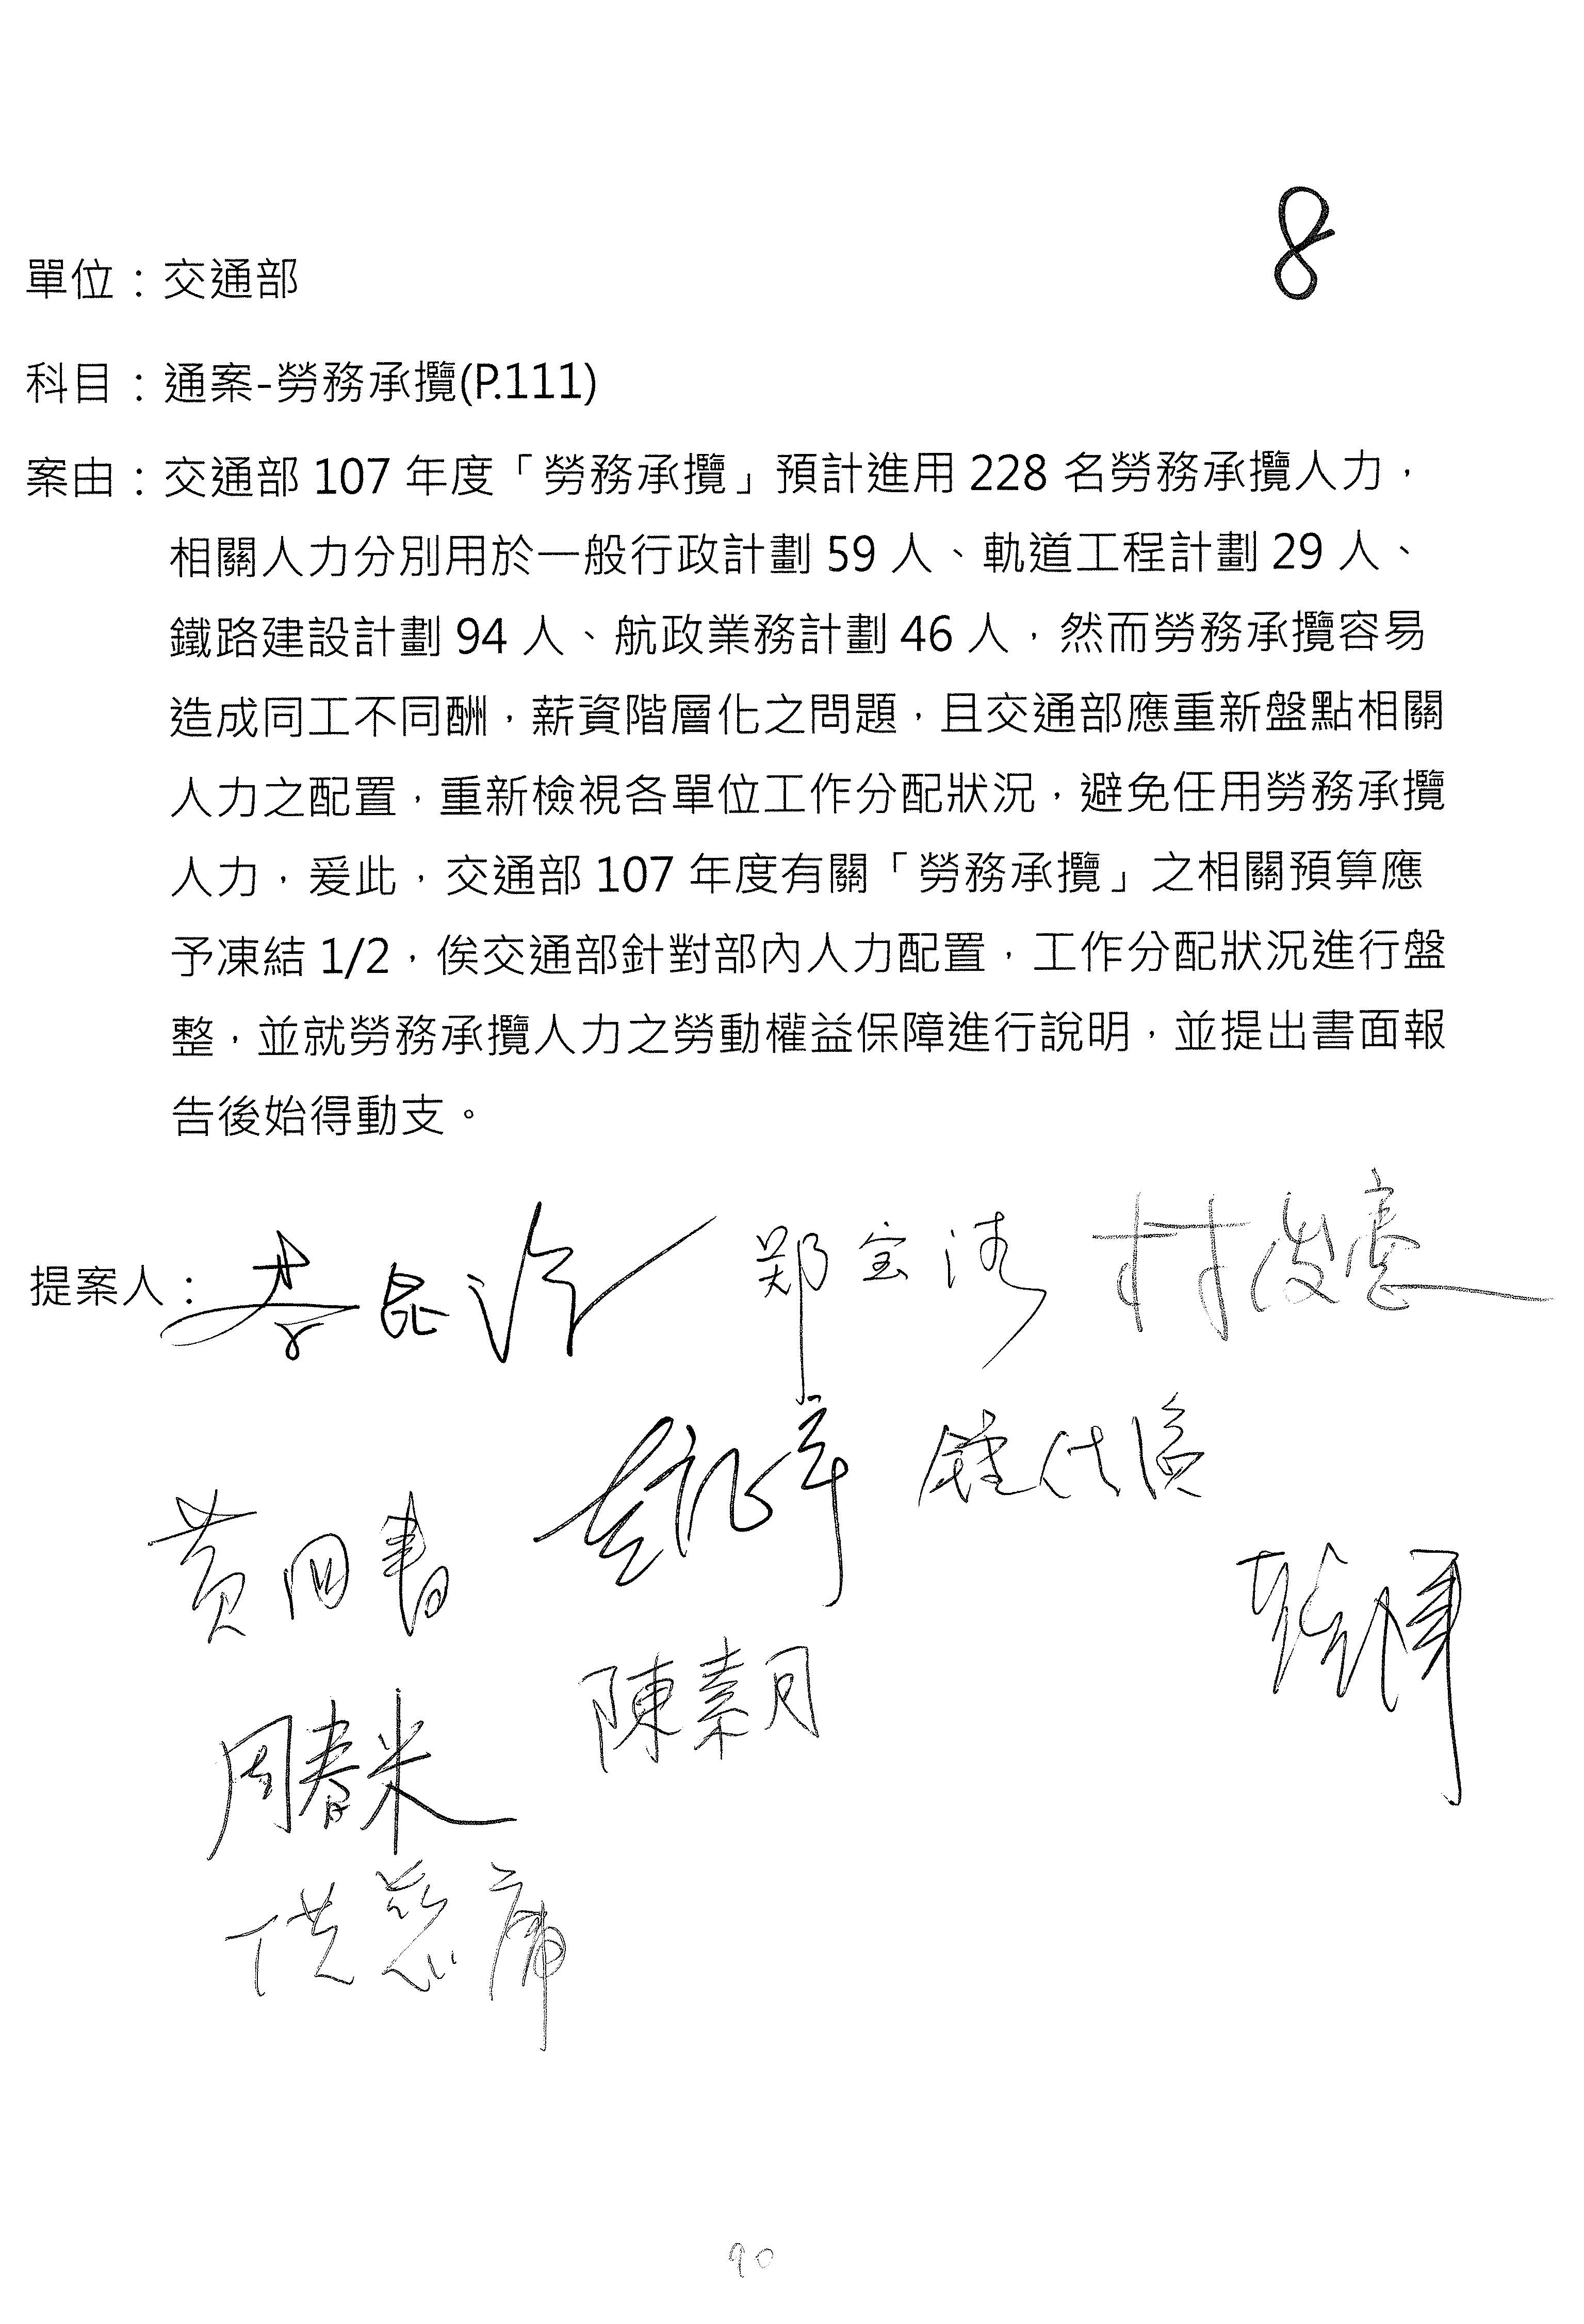 8
單位：交通部
科目：通案-勞務承攬(P.111)
案由：交通部 107 年度「勞務承攬」預計進用 228 名勞務承攬人力，
相關人力分別用於一般行政計劃 59 人、軌道工程計劃 29 人、
鐵路建設計劃 94 人、航政業務計劃 46 人，然而勞務承攬容易
造成同工不同酬，薪資階層化之問題，且交通部應重新盤點相關
人力之配置，重新檢視各單位工作分配狀況，避免任用勞務承攬
人力，爰此，交通部 107 年度有關「勞務承攬」之相關預算應
予凍結 1/2，俟交通部針對部內人力配置，工作分配狀況進行盤
整，並就勞務承攬人力之勞動權益保障進行說明，並提出書面報
告後始得動支。
提案人：李昆澤 鄭宝清 林俊憲
黃國書
陳素月
周春米
洪慈庸
90